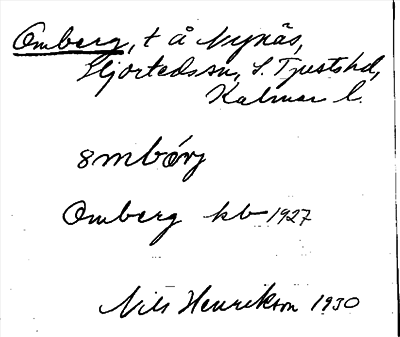 Omberg, t å Nynäs,
Hjorteds sn, S. Tjusts hd,
Kalmar l.
ꝏmbárj
Omberg kb 1927
Nils Henrikson 1930